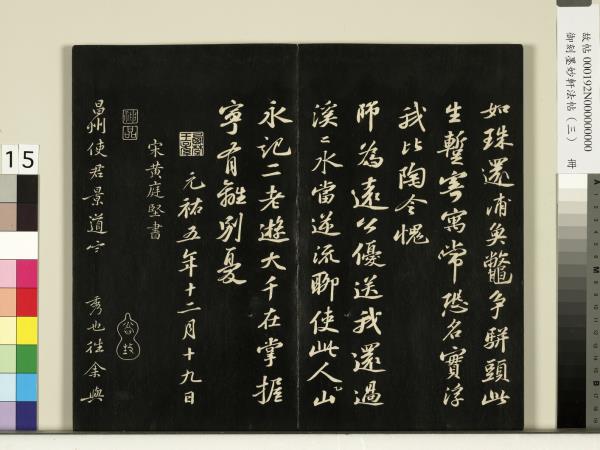 故帖 000192N000000000
御刻墨妙軒法帖（三） 冊
如珠還浦魚鼈爭駢頭此
生蹔寄寓常恐名實浮
我比陶令愧
師為遠公優送我還過
溪〻水當逆流聊使此人山
永記二老遊大千在掌握
寧有離別憂
元祐五年十二月十九日
宋黃庭堅書
昌州使君景道宗
秀也往余與
15